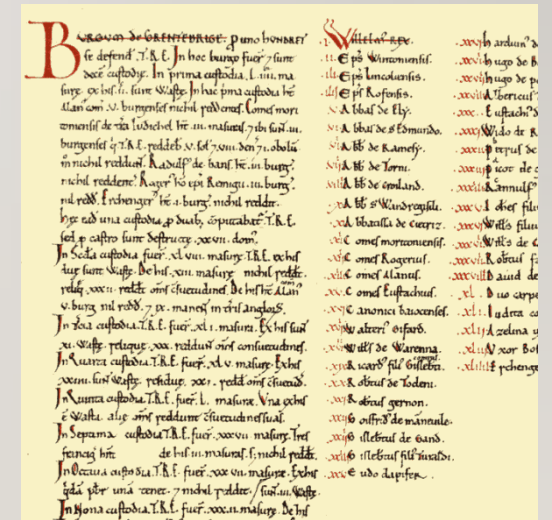 BURGUM de GRENTEBRIGE. p uno HUNDRET
se defend. T.R.E. In hoc burgo fuer 7 sunt
decē custodię. In prima custodia. L. IIII. ma
surę. ex his. II. sunt Wastę. In hac pma custodia hē
Alan com. V. burgenses nichil reddentes. Comes mori
toniensis de tra Iudichel hē. III. masuras. 7 ibi sunt. III.
burgenses
m nichil reddunt. Radulf de bans. hē. III. burg.
nichil reddentes. Roger hō epi Remigii. III. burg.
nil redd. Erchenger hē. I. burg. nichil reddit.
hęc ead una custodia p duab; computabat T.R.E.
sed p castro sunt destructę. XXVII. dom.
In Scda custodia fuer. XL VIII. masurę. T.R.E. ex his
duę sunt Wastę. De his. XIII. masurę nichil reddt.
relię. XXXII. reddt oms csuetudines. De his hē Alan
V. burg. nil redd. 7 IX. manen in tris anglor.
In Tcia custodia. T.R.E. fuer. XL I. masura. Ex his sun
XI. Wastę. reliquę. XXX. reddun oms consuetudines.
In Quarta custodia. T.R.E. fuer. XL V. masurę. Ex his
XXIIII. sun Wastę. residuę. XXI. redd oms csuetud.
In Quinta custodia. T.R.E. fuer. L. masurę. Una ex his
ē Wasta. alię oms reddunt csuetudines suas.
In Septima custodia. T.R.E. fuer. XXX VII. masurę. Tres
francig hnt de his. III. masuras. s; nichil reddt.
In Octava custodia. T.R.E. fuer. XXX VII. masurę. Ex his
qda pbr una tenet. 7 nichil reddit. sun. III. Wastę.
In Nona custodia. T.R.E. fuer. XXX.II. masurę. De his
.I. Willelm REX.
.II. Eps Wintoniensis.
.III. Eps Lincoliensis.
.IIII. Eps Rofensis.
.V. Abbas de Ely.
.VI. Abbas de S Edmundo.
.VII. Abb de Ramesy.
.VIII. Abb de Torni.
.IX. Abb de Croiland.
.X. Abb S Wandregisili.
.XI. Abbatissa de Cietriz.
.XII. Comes moritoniensis.
.XIII. Comes Rogerius.
.XIIII. Comes Alanus.
.XV. Comes Eustachius.
.XVI. Canonici baiocenses.
.XVII. Walteri Gifard.
.XVIII. Wills de Warenna.
.XIX. Ricard fili Gisleberti.
.XX. Robtus de Todeni.
.XXI. Robtus gernon.
.XXII. Goisfrid de manneuile.
.XXIII. Gislebtus de Gand.
.XXIIII. Gislebtus fili Turaldi.
.XXV. Eudo dapifer.
.XXVI. harduin
.XXVII. hugo de B
.XXVIII. hugo de p
Albericus
Eustachi
Wido de R
petrus de
picot de
Rannulf
Iohes filiu
Wills filiu
Wills de C
Robtus f
.XXXVIII. Dauid de
.XL. Duo carpe
.XLI. Iudita co
.XLII. Azelina u
.XLIII. Uxor Bos
.XLIIII. Erchenge